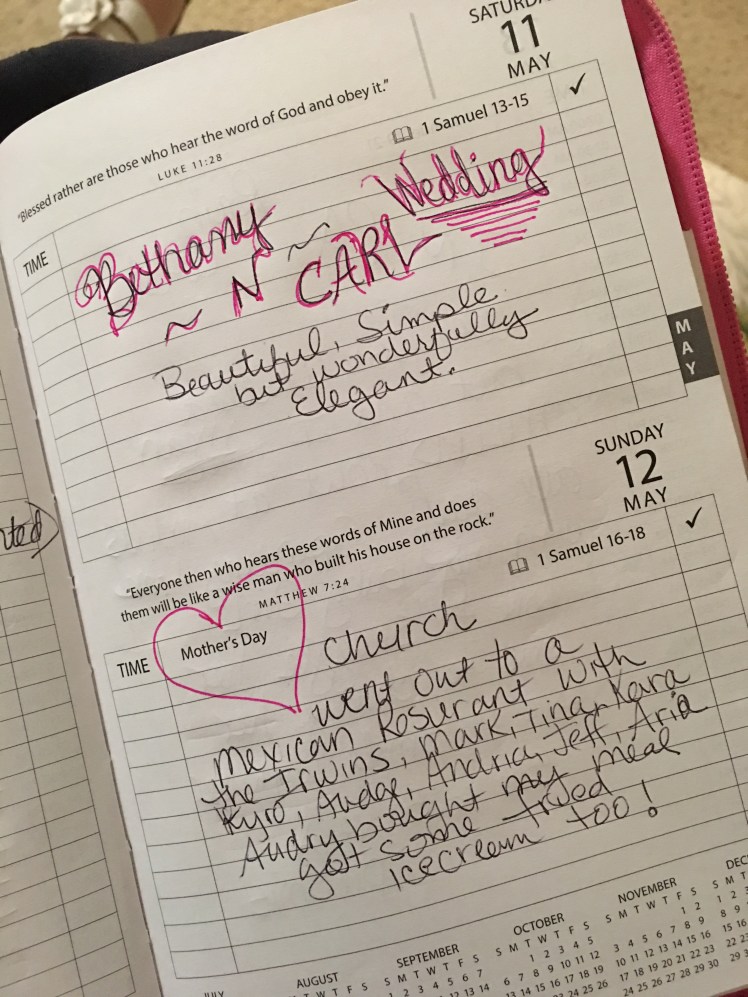 SATURDA
11
MAY
"Blessed rather are those who hear the word of God and obey it."
LUKE 11:28
1 Samuel 13-15
✓
TIME
Wedding
Bethany
~ N ~ CARL
Beautiful, Simple
but wonderfully
Elegant.
MAY
SUNDAY
12
MAY
"Everyone then who hears these words of Mine and does
them will be like a wise man who built his house on the rock."
MATTHEW 7:24
1 Samuel 16-18
✓
TIME
Mother's Day
church
went out to a
mexican Rosurant with
the Irwins, Mark, Tina, Kara
Kyro, Audge, Andria, Jeff, Aria
Audry bought my meal
got some fried
icecream too!
AUGUST
SEPTEMBER
S M T W T F S
1 2 3 4 5 6 7
OCTOBER
S M T W T F S
1 2 3 4 5
6 7 8 9 10 11 12
13 14 15 16 17 18 19
NOVEMBER
S M T W T F S
1 2
3 4 5 6 7 8 9
10 11 12 13 14 15 16
17 18 19 20 21 22 23
24 25 26 27 28 29 30
DEC
S M T
1 2 3
8 9
15 16
22 23
29 3